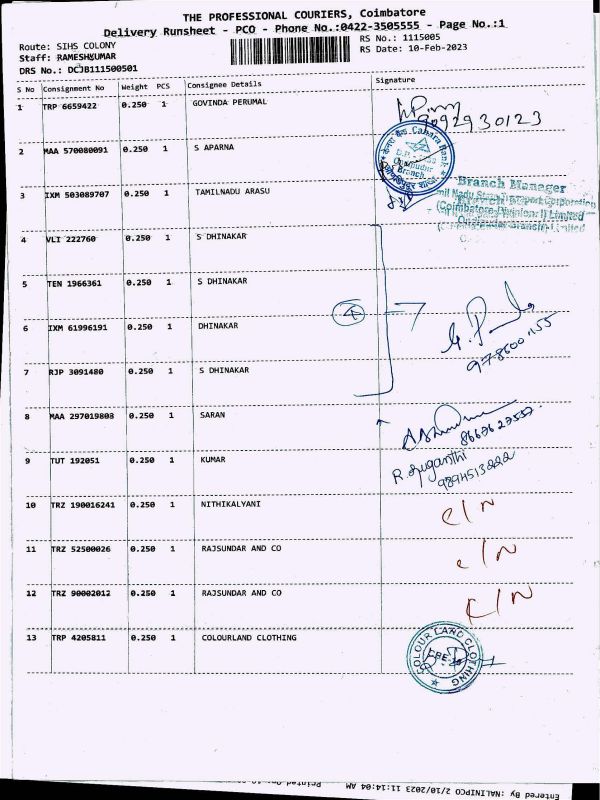 THE PROFESSIONAL COURIERS, Coimbatore
Delivery Runsheet - PCO - Phone No.:0422-3505555 - Page No.:1
Route: SIHS COLONY
RS No.: 1115005
Staff: RAMESHKUMAR
RS Date: 10-Feb-2023
DRS No: DCJB111500501
S No Consignment No Weight PCS Consignee Details Signature
1 TRP 6659422 0.250 1 GOVINDA PERUMAL
9092930123
2 MAA 570080091 0.250 1 S APARNA
Canara Bank
Branch
3 IXM 503089707 0.250 1 TAMILNADU ARASU
Branch Manager
Tamil Nadu State Transport Corporation
(Coimbatore Division I) Limited
4 VLI 222760 0.250 1 S DHINAKAR
5 TEN 1966361 0.250 1 S DHINAKAR
6 IXM 61996191 0.250 1 DHINAKAR
4
7 RJP 3091480 0.250 1 S DHINAKAR
8 MAA 297019808 0.250 1 SARAN
9 TUT 192051 0.250 1 KUMAR
R. Suganthi
9894513222
10 TRZ 190016241 0.250 1 NITHIKALYANI
c/n
11 TRZ 52500026 0.250 1 RAJSUNDAR AND CO
c/n
12 TRZ 90002012 0.250 1 RAJSUNDAR AND CO
c/n
13 TRP 4205811 0.250 1 COLOURLAND CLOTHING
COLOUR LAND CLOTHING
CBE
Entered By :NALINIPCO 2/10/2023 11:14:04 AM